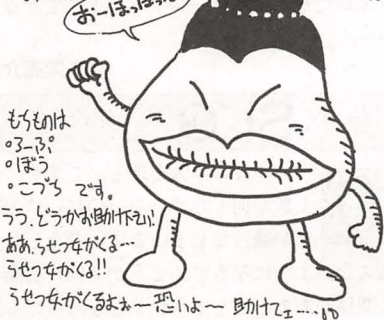 おーほっほっ
もちものは
・ろーぷ
・ぼう
・こづち です。
ララ、どうかお助け下さい!
ああ、らせつ女がくる…
らせつ女がくる!!
らせつ女がくるよぉ〜恐いよ〜 助けてェ……